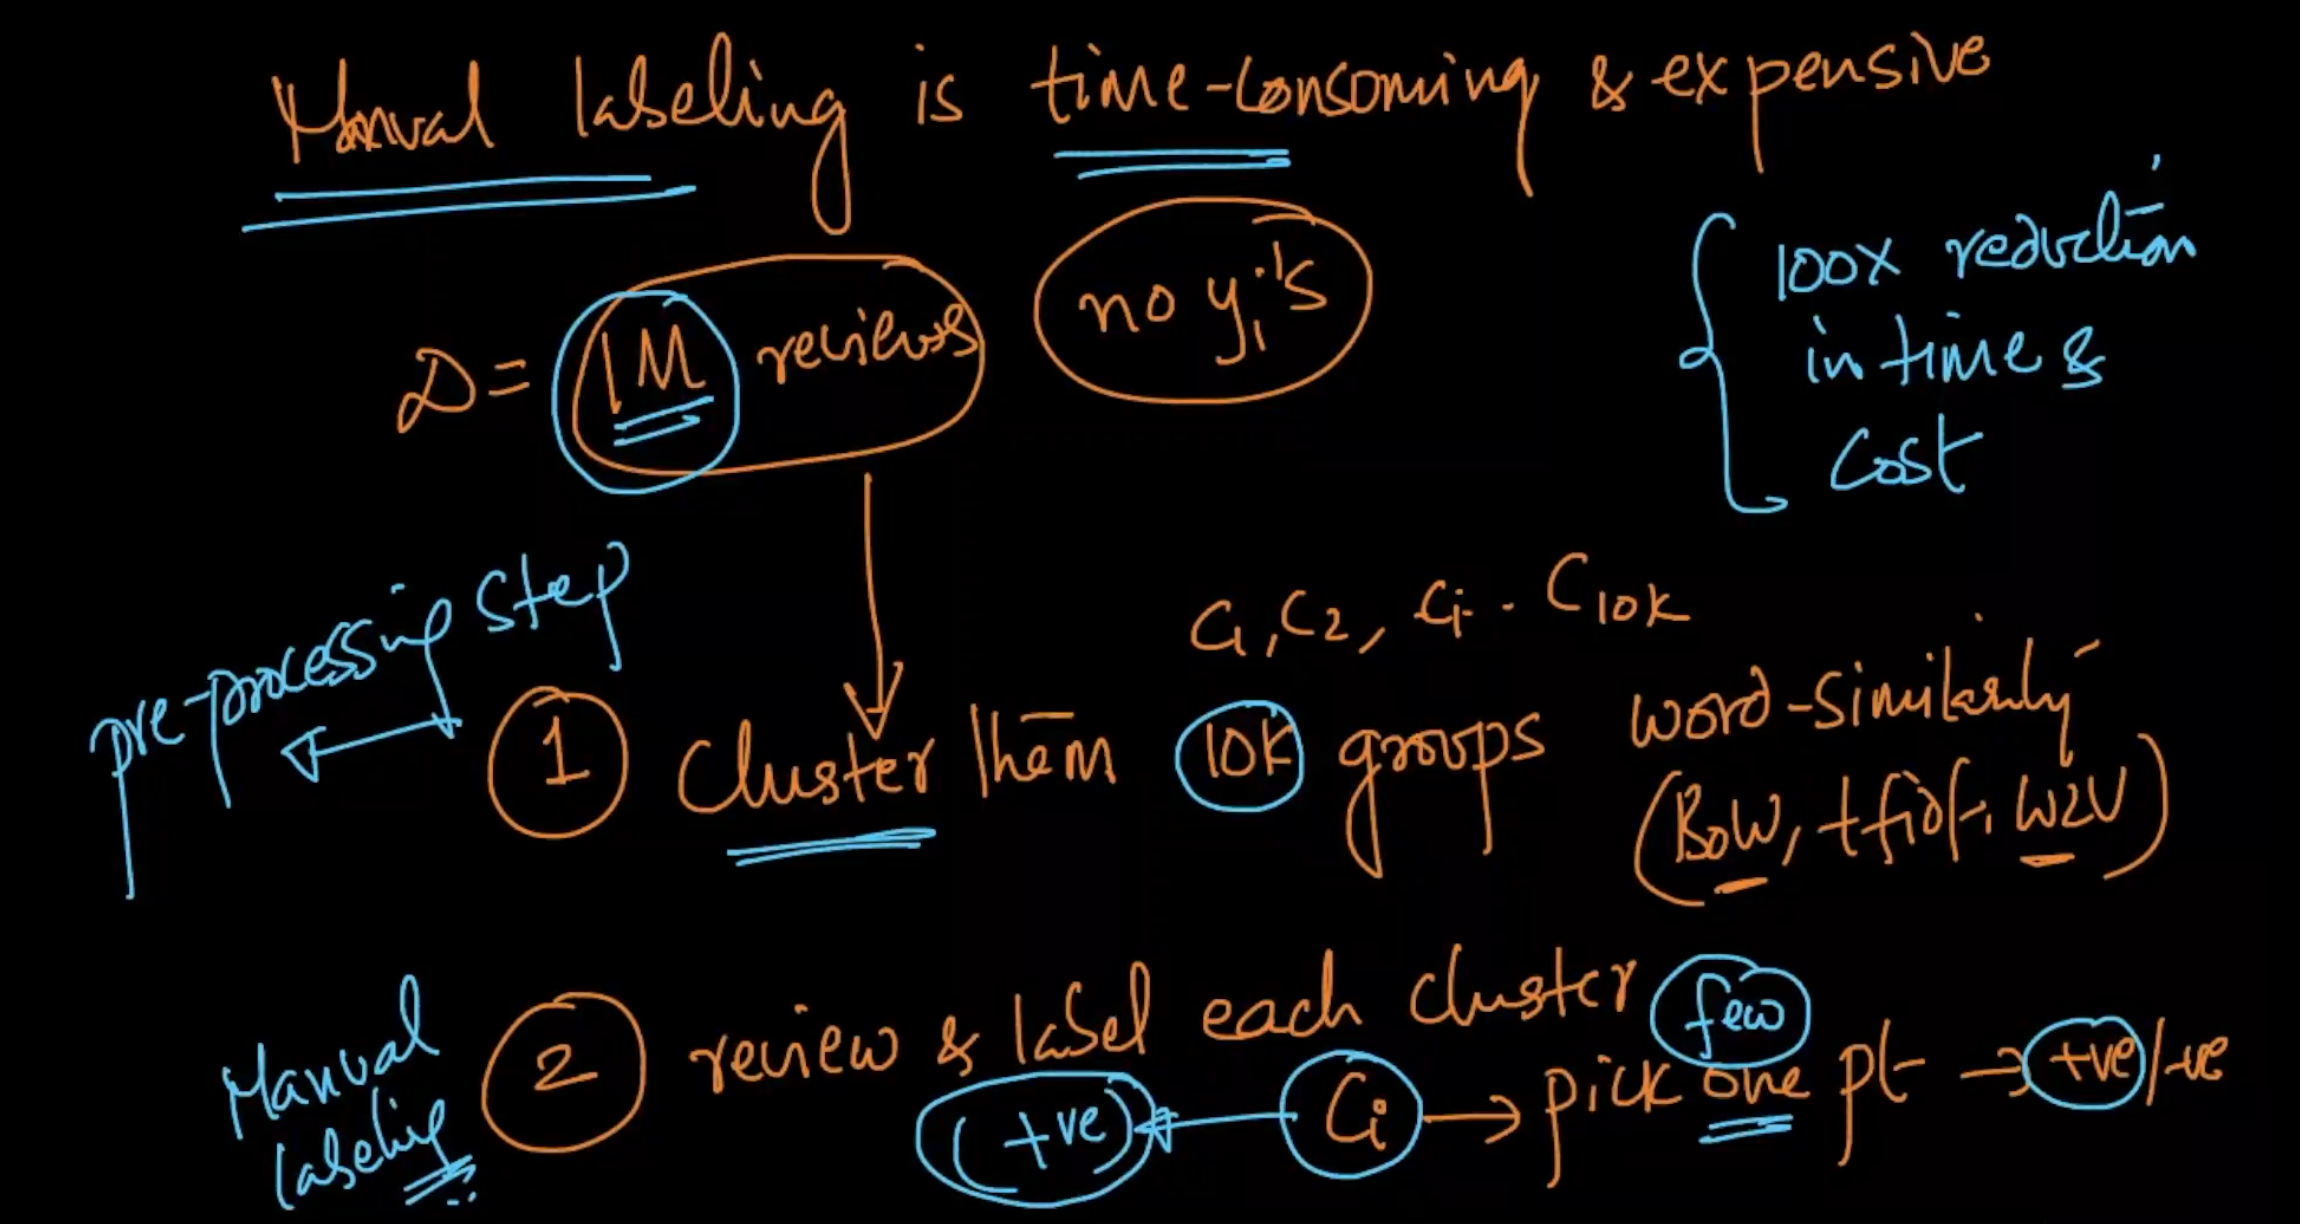 Manual labeling is time-consuming & expensive
D = 1M reviews no yi's
100X reduction
in time &
cost
pre-processing step
C1, C2, Ci .. C10K
1 Cluster them 10K groups word-similarity
(BoW, tfidf, W2V)
Manual
labeling
2 review & label each cluster few
(+ve) Ci → pick one pt → +ve/-ve